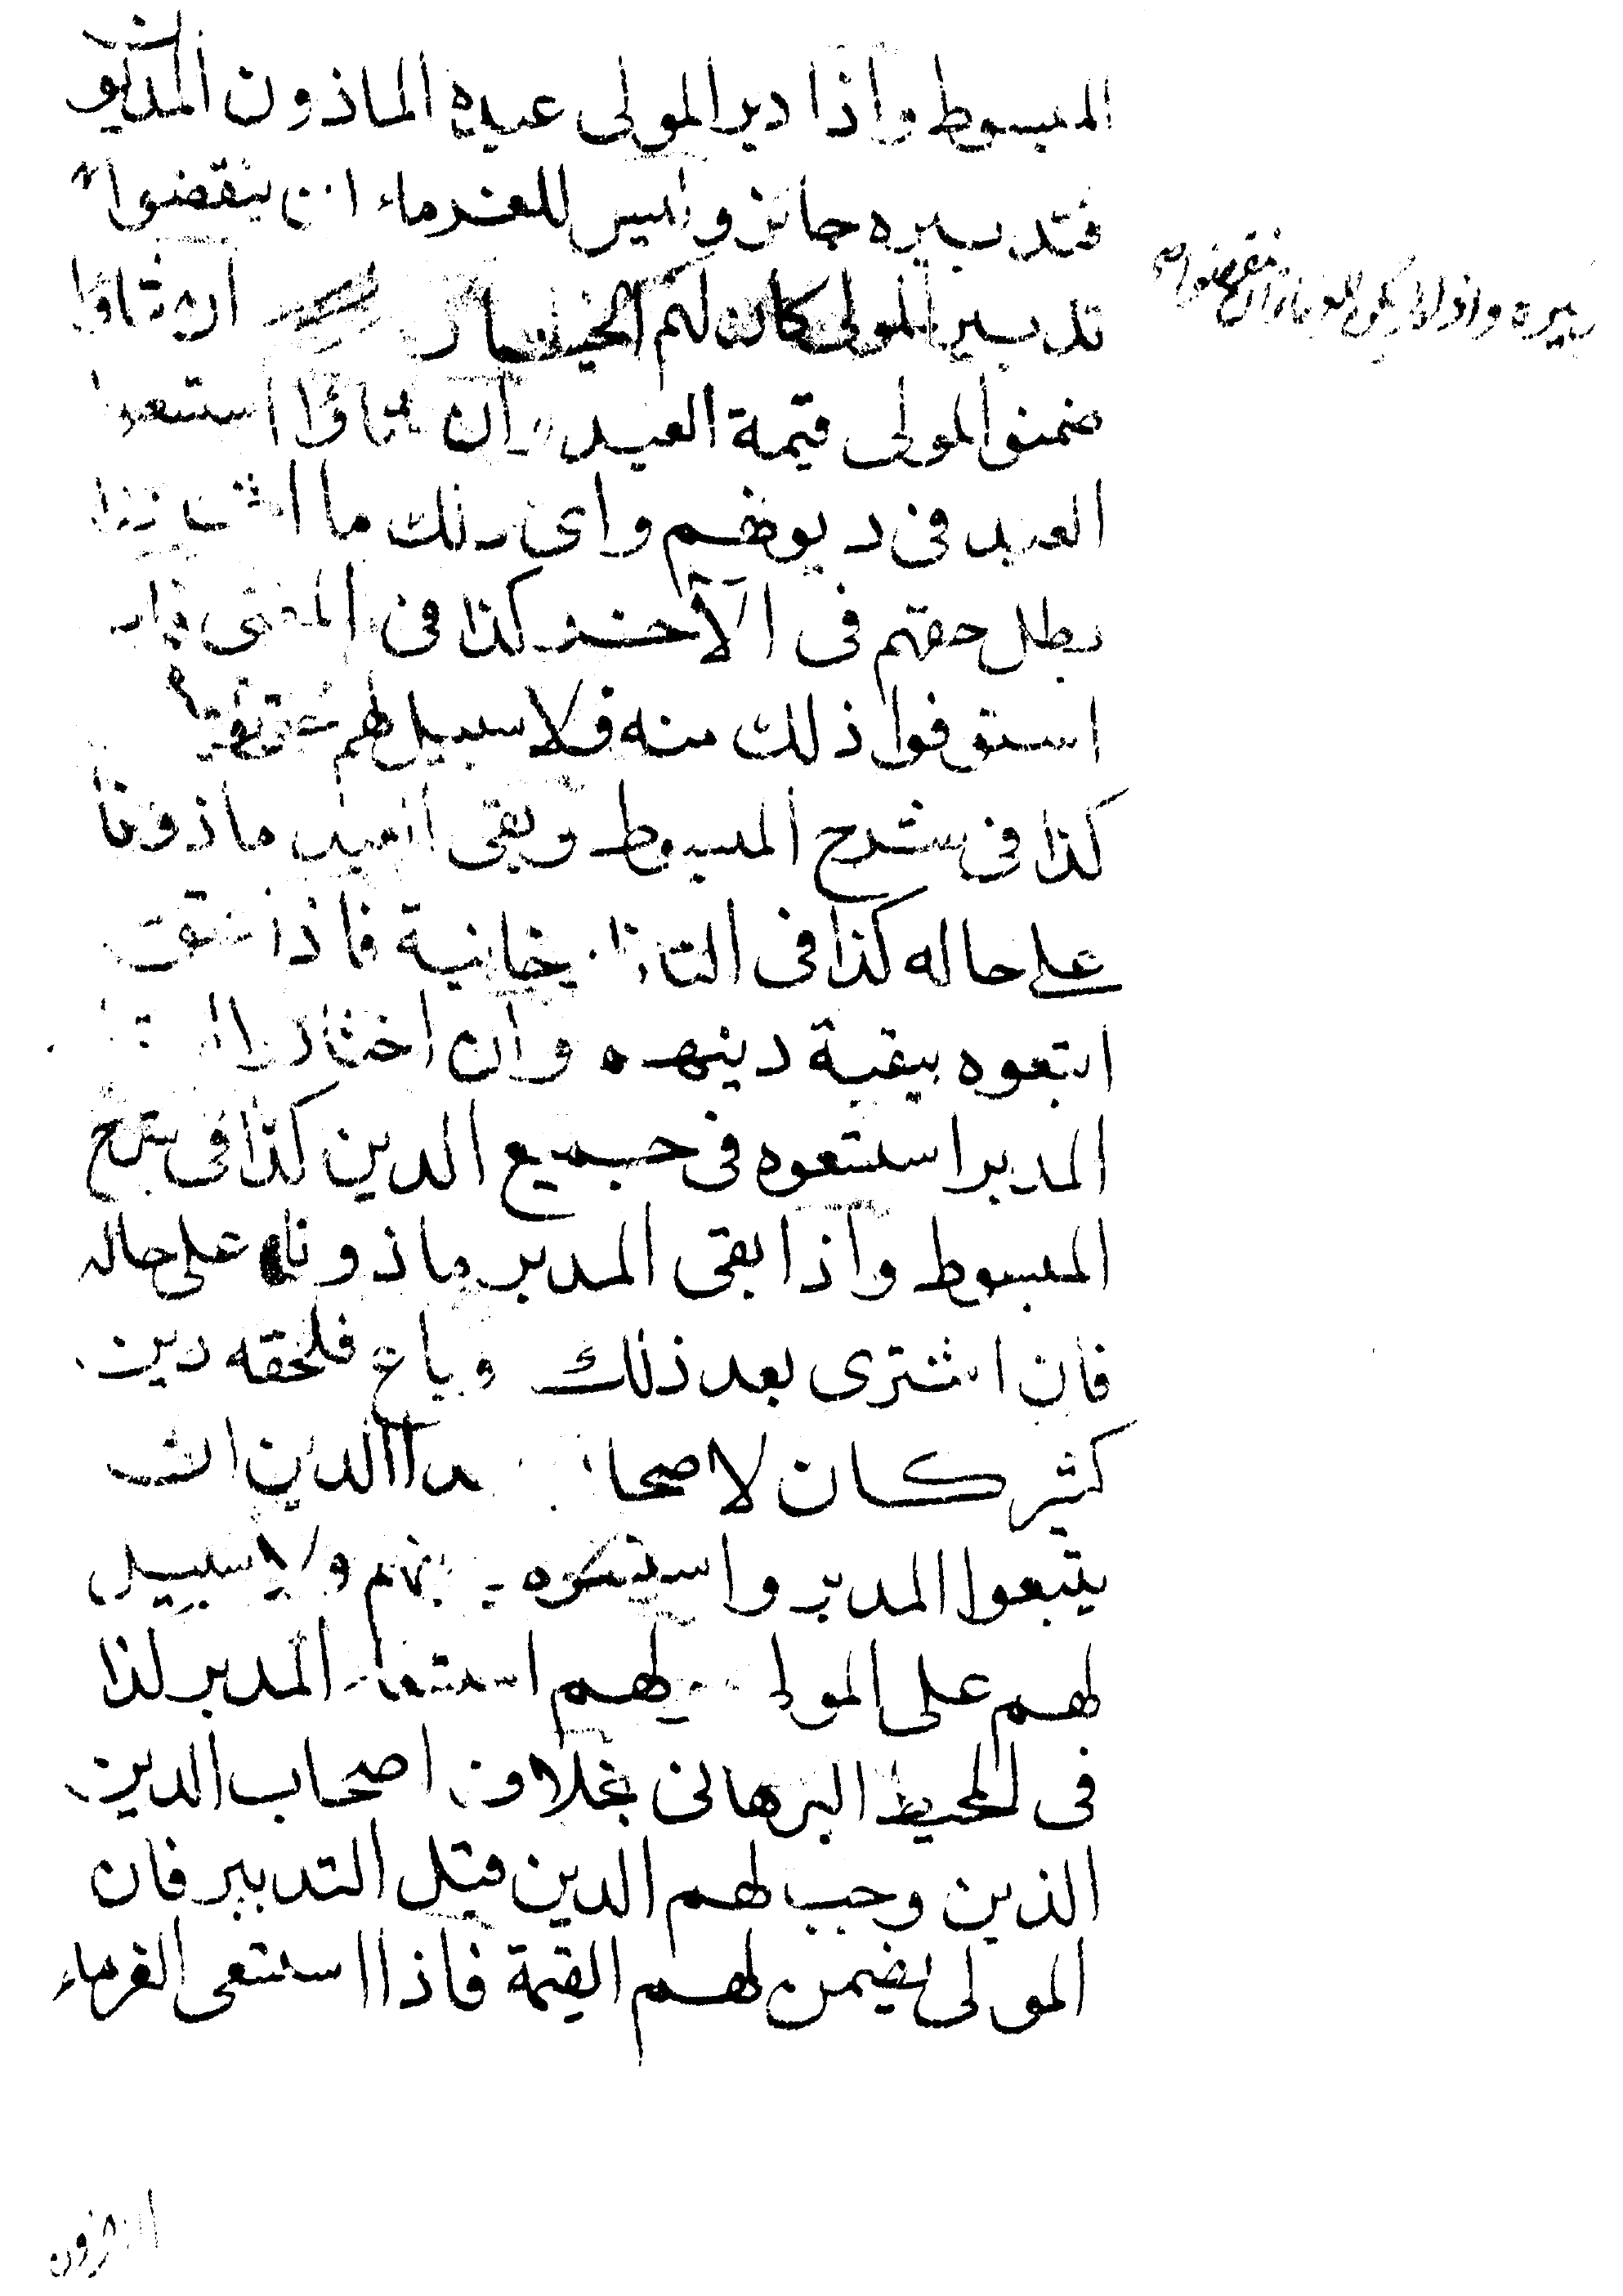 المبسوط واذا دبر المولى عبده الماذون المديون
فتدبيره جائز وليس للغرماء ان ينقضوا
تدبير المولى كان لهم الخيار ان شاؤا
ضمنوا المولى قيمة العبد وان شاؤا استسعوا
العبد في ديونهم واى ذلك ما اختاروا
بطل حقهم في الآخر كذا في المغنى فان
استوفوا ذلك منه فلا سبيل لهم
كذا في شرح المبسوط وبقى العبد ماذونا
على حاله كذا في التاتارخانية فاذا عتق
اتبعوه ببقية دينهم وان اختاروا
المدبر استسعوه في جميع الدين كذا في شرح
المبسوط واذا بقى المدبر ماذونا على حاله
فان اشترى بعد ذلك وباع فلحقه دين
كثير كان لاصحاب هذا الدين ان
يتبعوا المدبر واستسعوه بدينهم ولا سبيل
لهم على المولى لهم استسعاء المدبر كذا
في المحيط البرهانى بخلاف اصحاب الدين
الذين وجب لهم الدين قبل التدبير فان
المولى يضمن لهم القيمة فاذا استسعى الغرماء